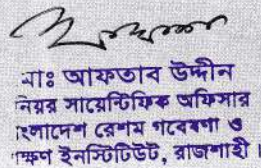 মাঃ আফতাব উদ্দীন
নিয়র সায়েন্টিফিক অফিসার
ংলাদেশ রেশম গবেষণা ও
শিক্ষণ ইনস্টিটিউট, রাজশাহী।